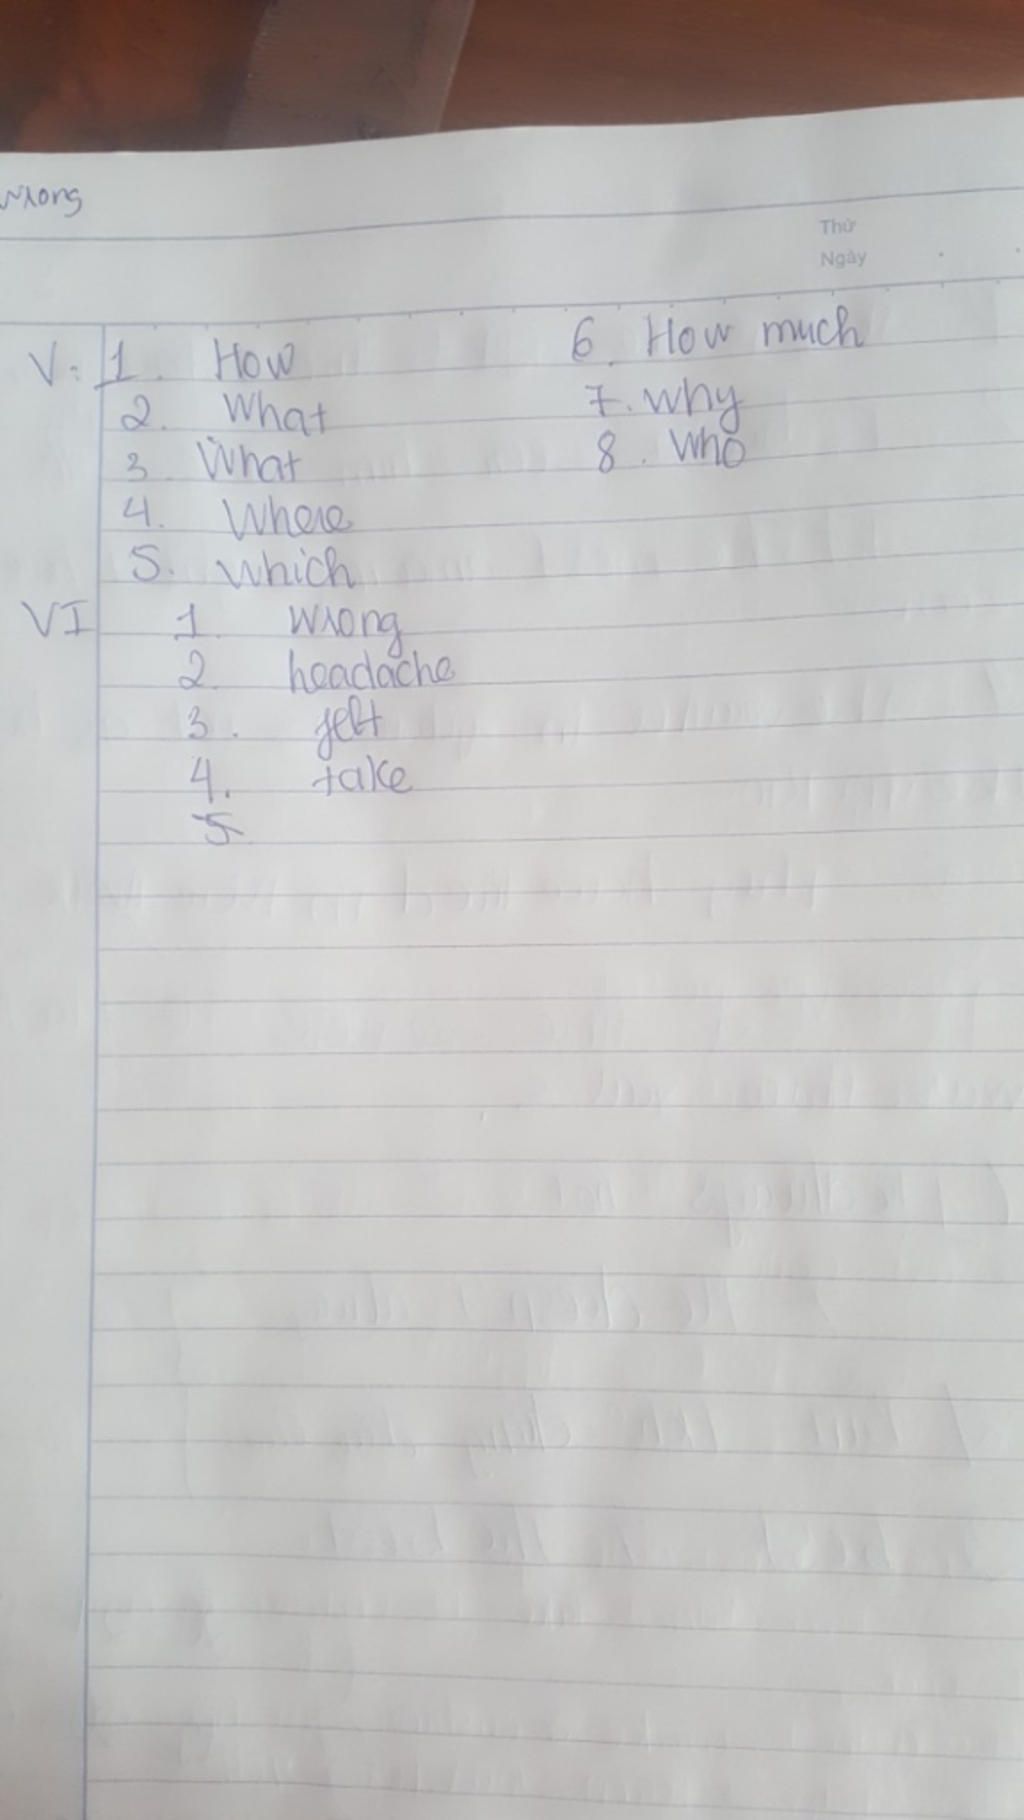 wrong
Thứ
Ngày
V: 1. How
2. What
3 What
4. Where
5. which
6. How much
7. why
8. who
VI 1 wrong
2 headache
3. felt
4. take
5